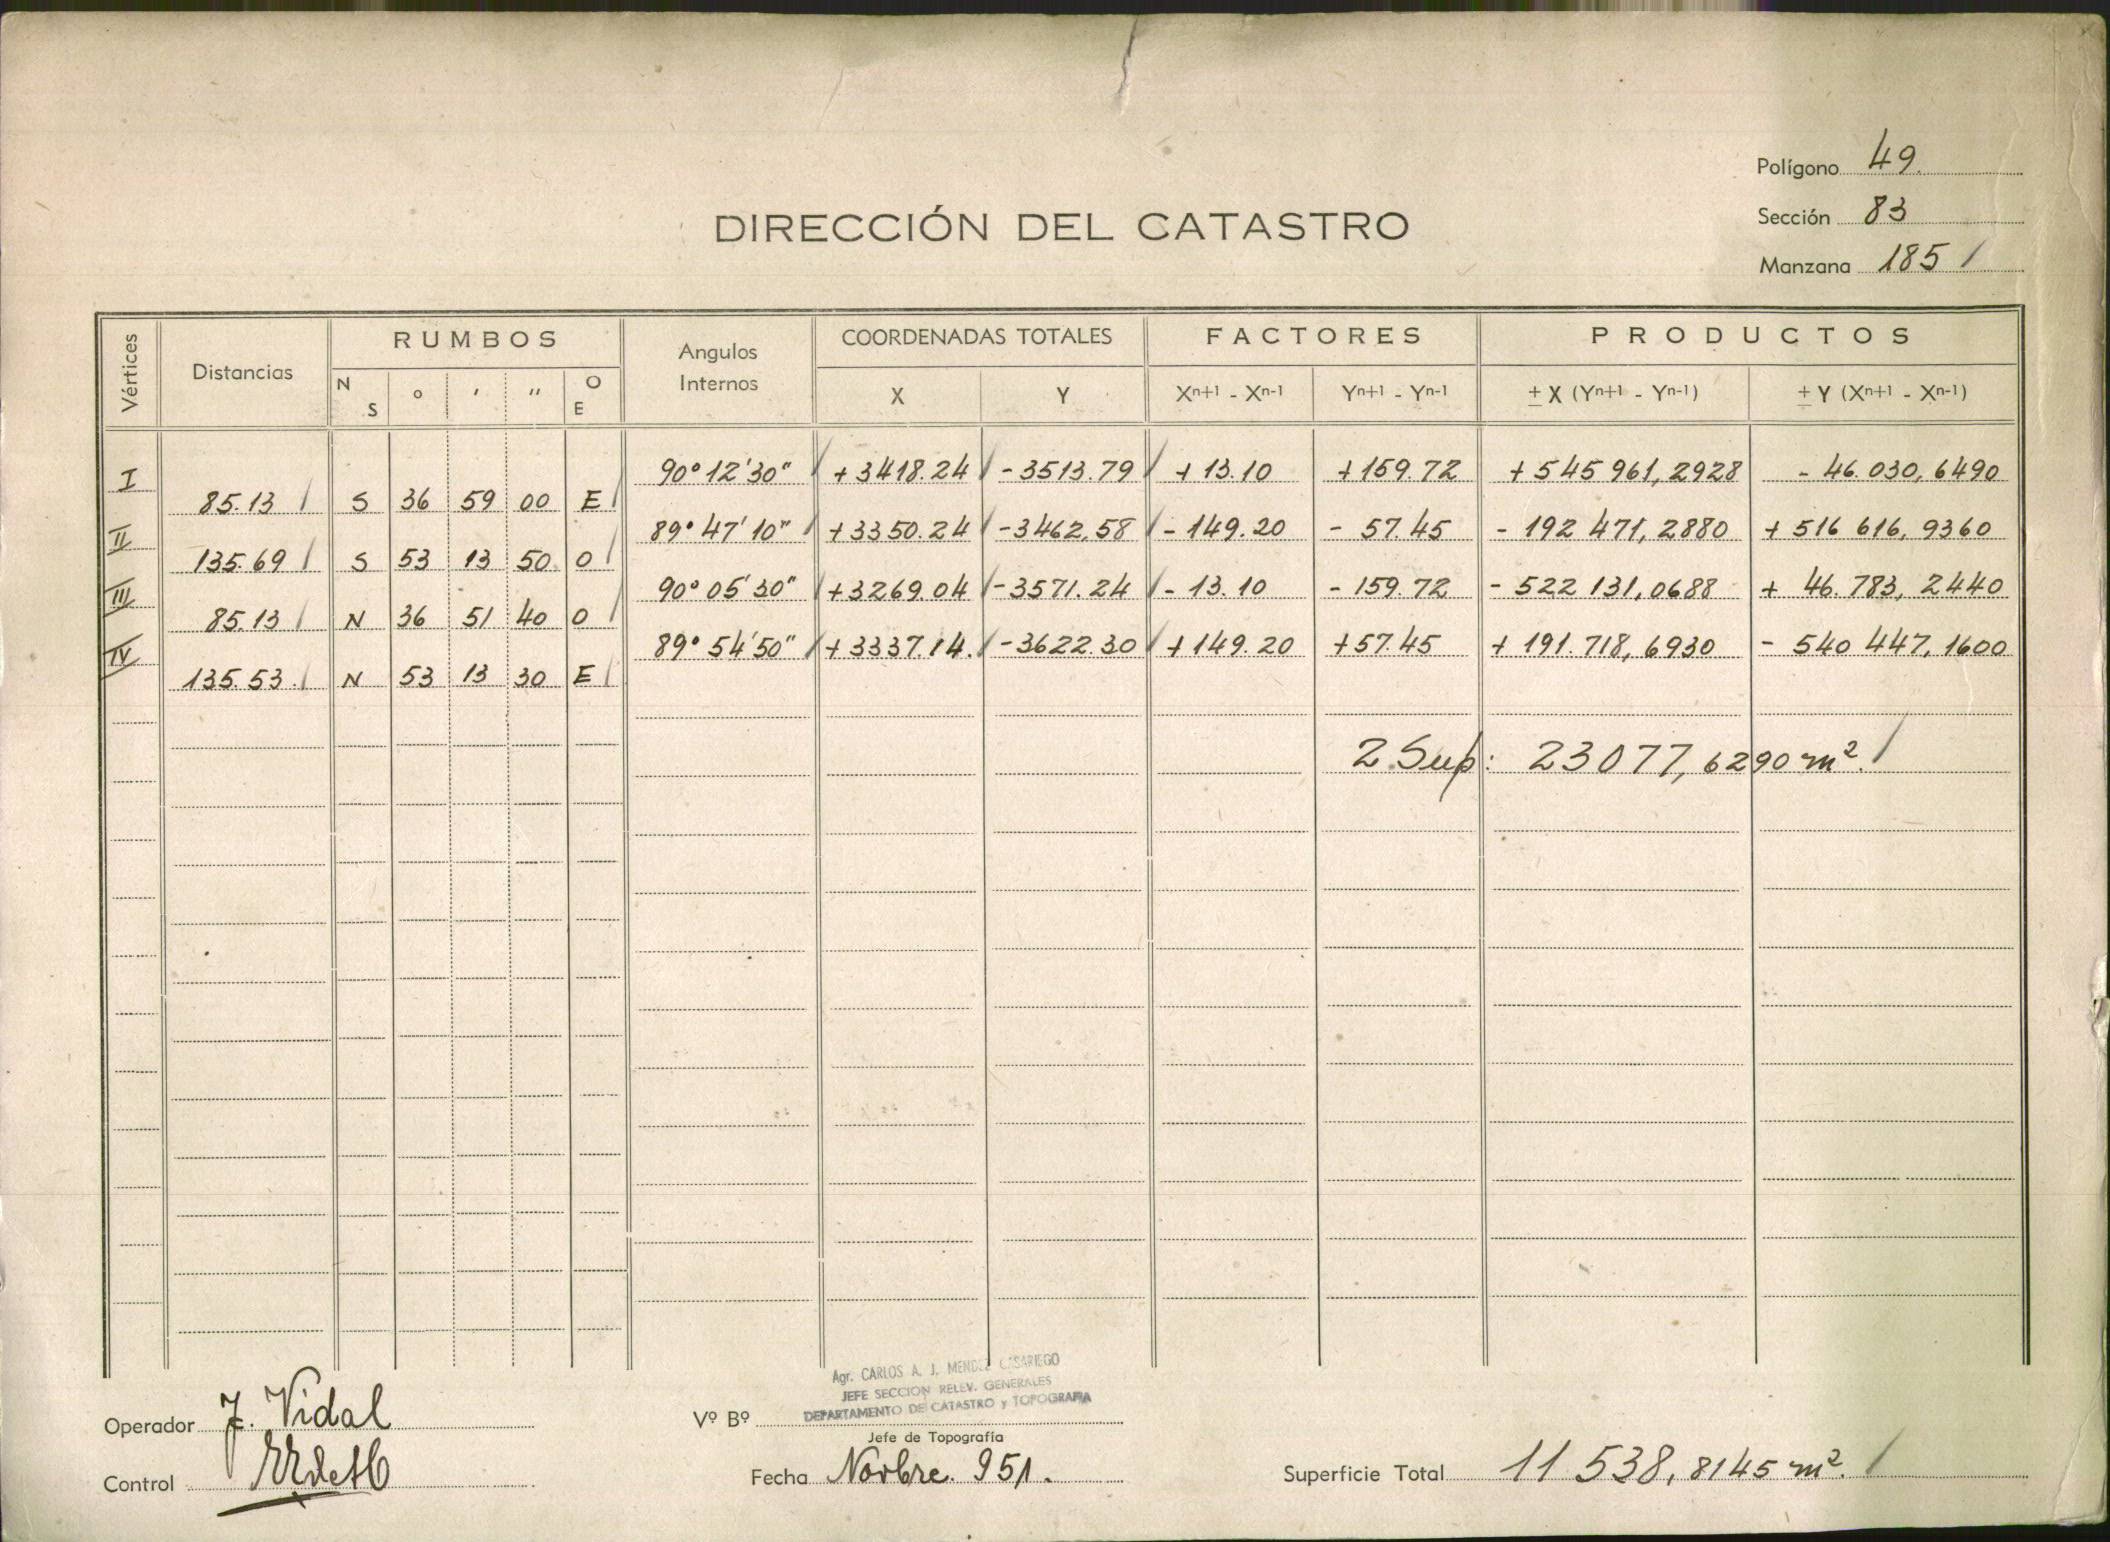 Polígono 49.
Sección 83
DIRECCIÓN DEL CATASTRO
Manzana 185 /
Vértices Distancias RUMBOS Angulos Internos COORDENADAS TOTALES FACTORES PRODUCTOS
N S o ' " O E X Y Xⁿ⁺¹ - Xⁿ⁻¹ Yⁿ⁺¹ - Yⁿ⁻¹ ± X (Yⁿ⁺¹ - Yⁿ⁻¹) ± Y (Xⁿ⁺¹ - Xⁿ⁻¹)
I 90° 12' 30" / +3418.24 / -3513.79 / +13.10 +159.72 +545 961,2928 -46.030,6490
85.13 / S 36 59 00 E /
II 89° 47' 10" / +3350.24 / -3462,58 / -149.20 -57.45 -192 471,2880 +516 616,9360
135.69 / S 53 13 50 O /
III 90° 05' 30" / +3269.04 / -3571.24 / -13.10 -159.72 -522 131,0688 +46.783,2440
85.13 / N 36 51 40 O /
IV 89° 54' 50" / +3337.14. / -3622.30 / +149.20 +57.45 +191.718,6930 -540 447,1600
135.53. / N 53 13 30 E /
2 Sup: 23077,6290 m². /
Agr. CARLOS A. J. MENDEZ CASARIEGO
JEFE SECCION RELEV. GENERALES
DEPARTAMENTO DE CATASTRO y TOPOGRAFIA
Operador J. Vidal Vº Bº
Jefe de Topografía
Control Fecha Novbre. 951. Superficie Total 11 538,8145 m². /